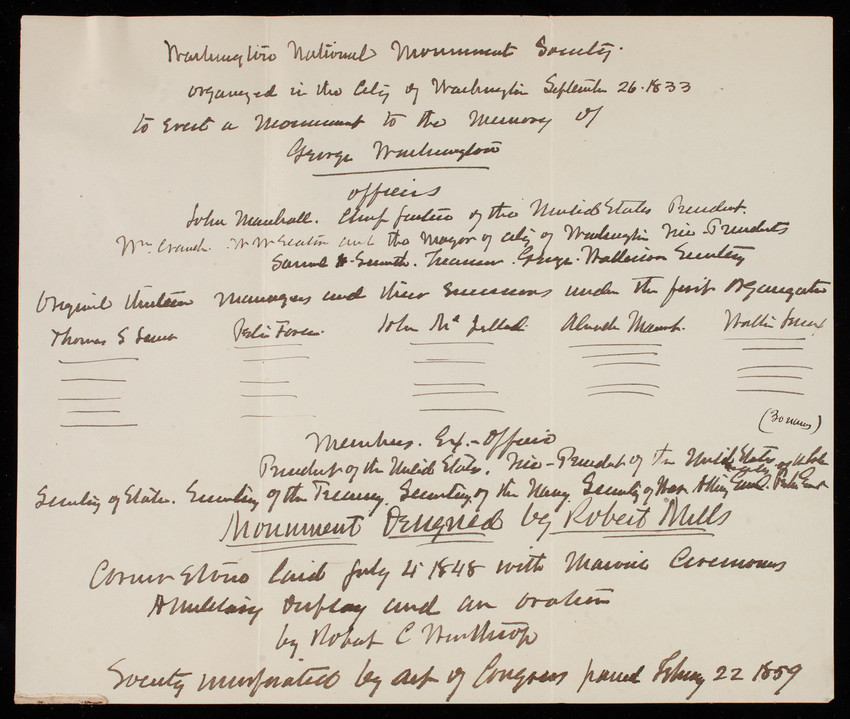 Washington National Monument Society.
organized in the City of Washington September 26. 1833
to Erect a Monument to the Memory of
George Washington
officers
John Marshall. Chief Justice of the United States President.
Wm. Cranch. W W Seaton and the Mayor of City of Washington Vice-Presidents
Samuel H. Smith. Treasurer. George Watterson Secretary
Original thirteen managers and their successors under the first Organization
Thomas S Peter Force. John McClelland. Walter
(30 names)
Members. Ex.-Officio
President of the United States. Vice-President of the United States
Secretary of State. Secretary of the Treasury. Secretary of the Navy. Secretary of War
Monument Designed by Robert Mills
Corner Stone laid July 4 1848 with Masonic Ceremonies
A military display and an oration
by Robert C Winthrop
Society incorporated by act of Congress passed Febuary 22 1859